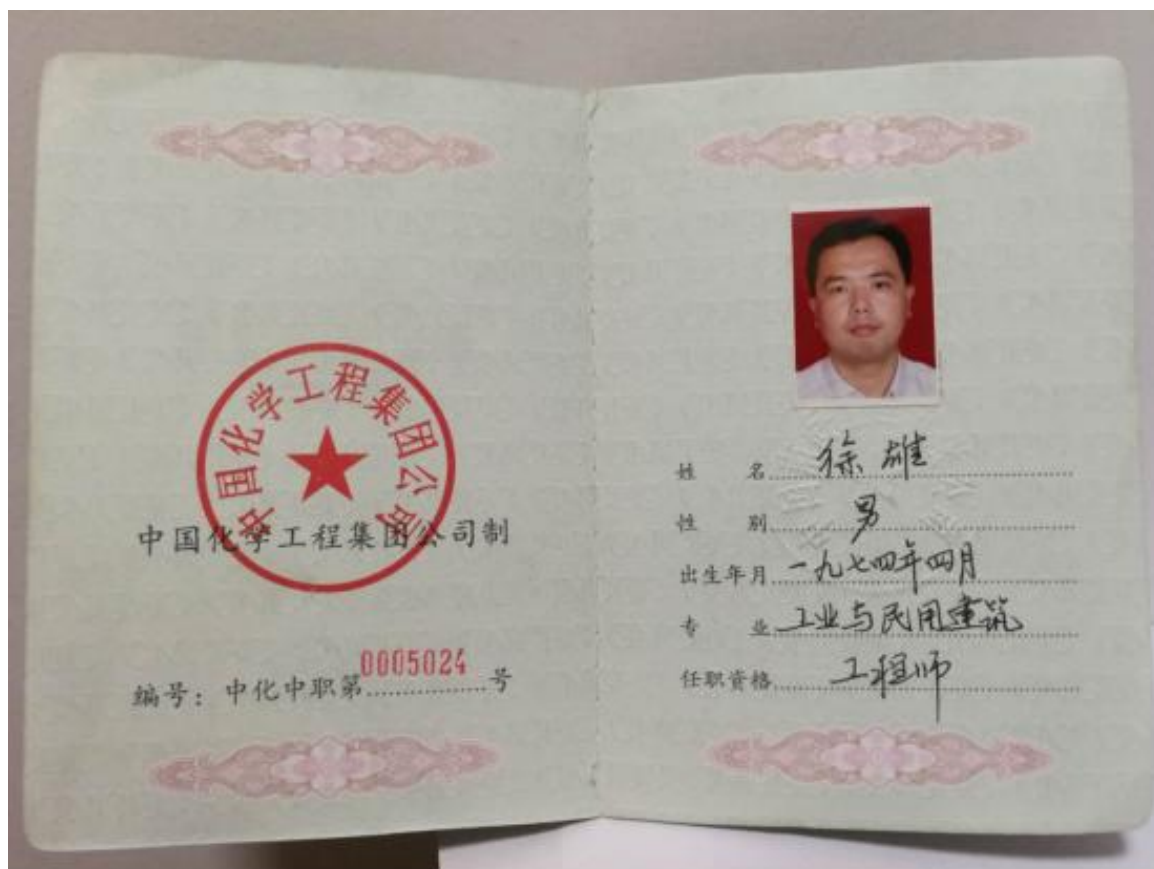 中国化学工程集团公司
中国化学工程集团公司制
编号：中化中职第0005024号
姓 名 徐雄
性 别 男
出生年月 一九七四年四月
专 业 工业与民用建筑
任职资格 工程师